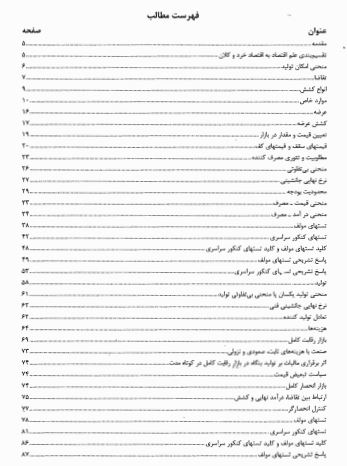 فهرست مطالب
عنوان صفحه
مقدمه ۵
تقسیم‌بندی علم اقتصاد به اقتصاد خرد و کلان ۵
منحنی امکان تولید ۶
تقاضا ۷
انواع کشش ۹
موارد خاص ۱۰
عرضه ۱۶
کشش عرضه ۱۷
تعیین قیمت و مقدار در بازار ۱۹
قیمتهای سقف و قیمتهای کف ۲۰
مطلوبیت و تئوری مصرف کننده ۲۳
منحنی بی‌تفاوتی ۲۶
نرخ نهایی جانشینی ۲۷
محدودیت بودجه ۲۹
منحنی قیمت ـ مصرف ۳۳
منحنی در آمد ـ مصرف ۳۴
تستهای مولف ۳۸
تستهای کنکور سراسری ۴۲
کلید تستهای مولف و کلید تستهای کنکور سراسری ۴۸
پاسخ تشریحی تستهای مولف ۴۹
پاسخ تشریحی تستهای کنکور سراسری ۵۳
تولید ۵۸
منحنی تولید یکسان یا منحنی بی‌تفاوتی تولید ۶۱
نرخ نهایی جانشینی فنی ۶۲
تعادل تولید کننده ۶۲
هزینه‌ها ۶۴
بازار رقابت کامل ۶۹
صنعت با هزینه‌های ثابت، صعودی و نزولی ۷۳
اثر برقراری مالیات بر تولید بنگاه در بازار رقابت کامل در کوتاه مدت ۷۴
سیاست تبعیض قیمت ۷۴
بازار انحصار کامل ۷۴
ارتباط بین تقاضا، درآمد نهایی و کشش ۷۵
کنترل انحصارگر ۷۷
تستهای مولف ۷۸
تستهای کنکور سراسری ۸۱
کلید تستهای مولف و کلید تستهای کنکور سراسری ۸۶
پاسخ تشریحی تستهای مولف ۸۷